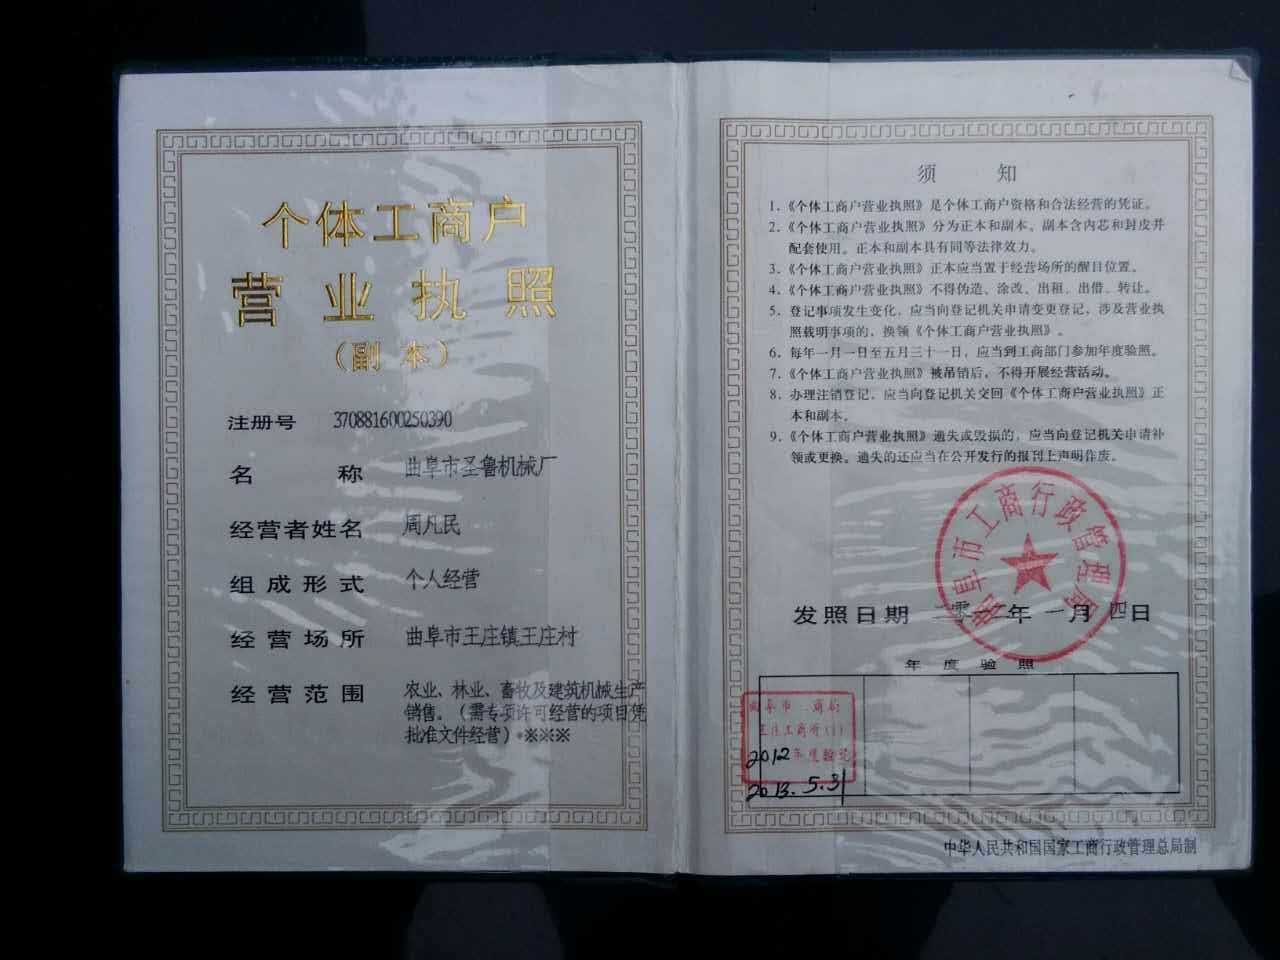 个体工商户
营业执照
（副本）
注册号 370881600250390
名称 曲阜市圣鲁机械厂
经营者姓名 周凡民
组成形式 个人经营
经营场所 曲阜市王庄镇王庄村
经营范围 农业、林业、畜牧及建筑机械生产
销售。（需专项许可经营的项目凭
批准文件经营）※※※
须知
1．《个体工商户营业执照》是个体工商户资格和合法经营的凭证。
2．《个体工商户营业执照》分为正本和副本，副本含内芯和封皮并
配套使用。正本和副本具有同等法律效力。
3．《个体工商户营业执照》正本应当置于经营场所的醒目位置。
4．《个体工商户营业执照》不得伪造、涂改、出租、出借、转让。
5．登记事项发生变化，应当向登记机关申请变更登记，涉及营业执
照载明事项的，换领《个体工商户营业执照》。
6．每年一月一日至五月三十一日，应当到工商部门参加年度验照。
7．《个体工商户营业执照》被吊销后，不得开展经营活动。
8．办理注销登记，应当向登记机关交回《个体工商户营业执照》正
本和副本。
9．《个体工商户营业执照》遗失或毁损的，应当向登记机关申请补
领或更换。遗失的还应当在公开发行的报刊上声明作废。
曲阜市工商行政管理局
发照日期 年一月四日
年度验照
2012年度验讫
2013.5.31
中华人民共和国国家工商行政管理总局制